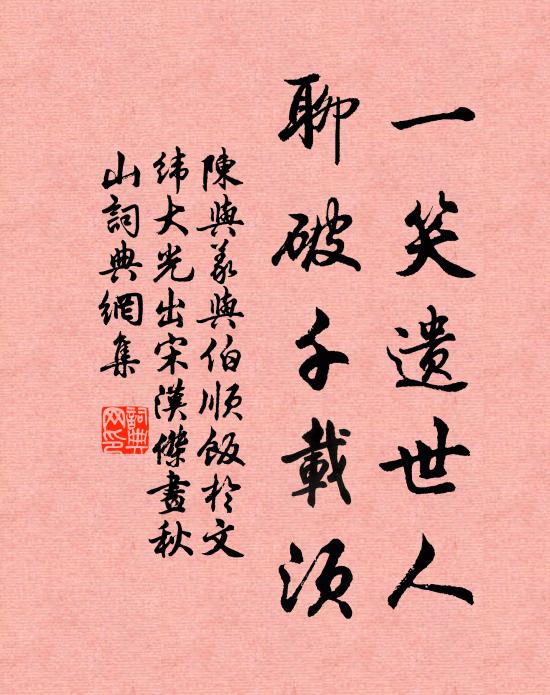 一笑遗世人
聊破千載須
陳與義與伯順飯於文
緯大光出宋漢傑畫秋
山詞典網集
詞典
网印